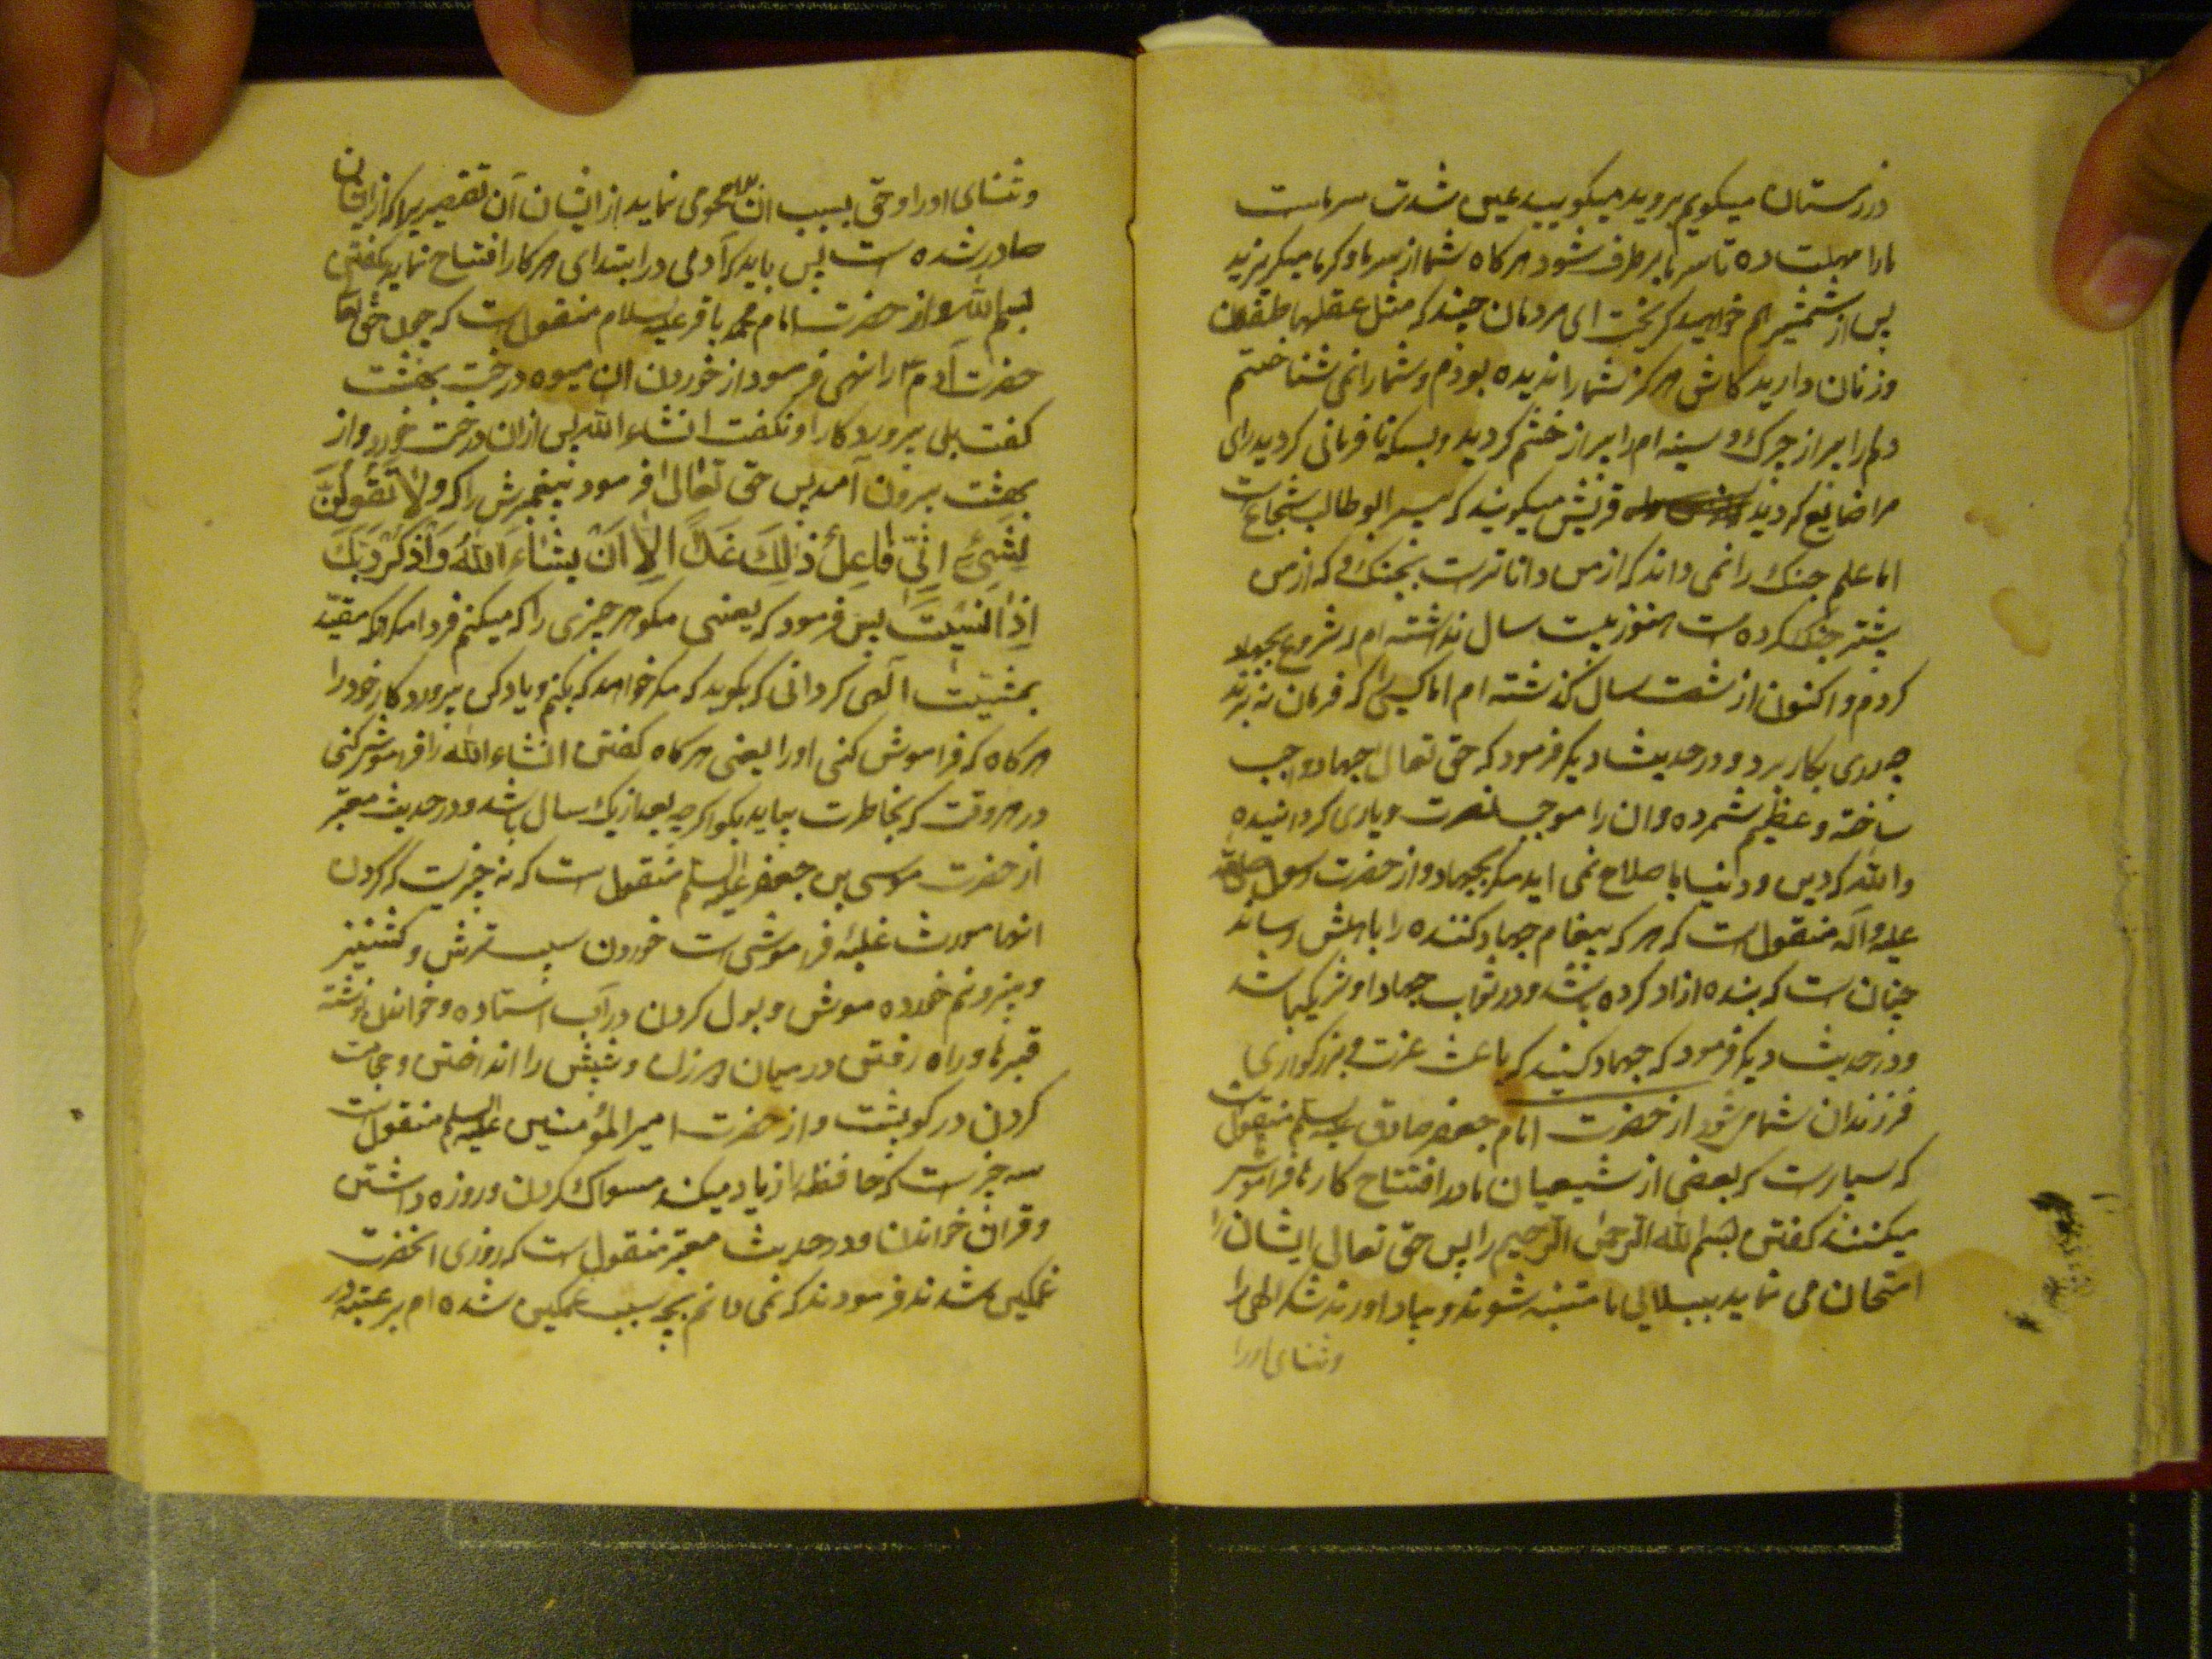 در زمستان میکویم بروید میکویید عین شدت سرماست
ما را مهلت ده تا سرما برطرف شود هرکاه شما از سرما و کرما میکریزید
پس از شمشیر هم خواهید کریخت ای مردمان چند که مثل عقلها طفلان
و زنان دارید کاش هرکز شما را ندیده بودم و شما را نمی شناختم
دلم را پر از چرک و سینه ام را پر از خشم کردید و بسکه نافرمانی کردید رای
مرا ضایع کردید قریش میکویند که پسر ابوطالب شجاعست
اما علم جنک را نمی داند که از من داناترست بجنک و که از من
بیشتر جنک کرده است هنوز بیست سال نداشته ام که شروع بجهاد
کردم و اکنون از شصت سال کذشته ام اما کسی که فرمان نبرند
چه رای بکار برد و در حدیث دیکر فرمود که حق تعالی جهاد واجب
ساخته و عظیم شمرده و ان را موجب نصرت و یاری کردانیده
والله که دین و دنیا با صلاح نمی اید مکر بجهاد و از حضرت رسول صلی الله
علیه و آله منقول است که هر که پیغام جهاد کننده را باهلش رساند
چنان است که بنده ازاد کرده باشد و در ثواب جهاد او شریک باشد
و در حدیث دیکر فرمود که جهاد کنید که باعث عزت و بزرکواری
فرزندان شما میشود از حضرت امام جعفر صادق علیه السلم منقول است
که بسیارست که بعضی از شیعیان ما در افتتاح کارها فراموش
میکنند کفتن بسم الله الرحمن الرحیم را پس حق تعالی ایشان را
امتحان می نماید ببلائی تا متنبه شوند و بیاد اورند شکر الهی را
و ثنای او را
و ثنای او را و حق بسبب ان بلا محو می نماید از ایشان آن تقصیر را که از ایشان
صادر شده است پس باید که آدمی در ابتدای هر کار افتتاح نماید بکفتن
بسم الله و از حضرت امام محمد باقر علیه السلام منقول است که چون حق تعالی
حضرت آدم را نهی فرمود از خوردن ان میوه درخت بهشت
کفت بلی پروردکارا و نکفت انشاء الله پس از ان درخت خورد و از
بهشت بیرون آمد پس حق تعالی فرمود پیغمبرش را که وَلا تَقُولَنَّ
لِشَیْءٍ اِنّی فاعِلٌ ذٰلِکَ غَداً اِلّا اَنْ یَشاءَ اللهُ وَاذْکُرْ رَبَّکَ
اِذا نَسیتَ پس فرمود که یعنی مکو هر چیزی را که میکنم فردا مکر آنکه مقید
بمشیت آلهی کردانی که بکوید که مکر خواهد که بکنم و یاد کن پروردکار خود را
هرکاه که فراموش کنی او را یعنی هرکاه کفتن انشاء الله را فراموش کنی
در هر وقت که بخاطرت بیاید بکو اکرچه بعد از یک سال باشد و در حدیث معتبر
از حضرت موسی بن جعفر علیه السلم منقول است که نه چیزست که کردن
انها مورث غلبه فراموشی است خوردن سیب ترش و کشنیز
و پنیر و نیم خورده موش و بول کردن در آب استاده و خواندن نوشته
قبرها و راه رفتن در میان دو زن و شپش را انداختن و حجامت
کردن در کو پشت و از حضرت امیر المؤمنین علیه السلم منقول است
سه چیز است که حافظه را زیاد میکند مسواک کردن و روزه داشتن
و قران خواندن و در حدیث معتبر منقول است که روزی انحضرت
غمکین شدند فرمودند که نمی دانم بچه سبب غمکین شده ام بر عتبه در